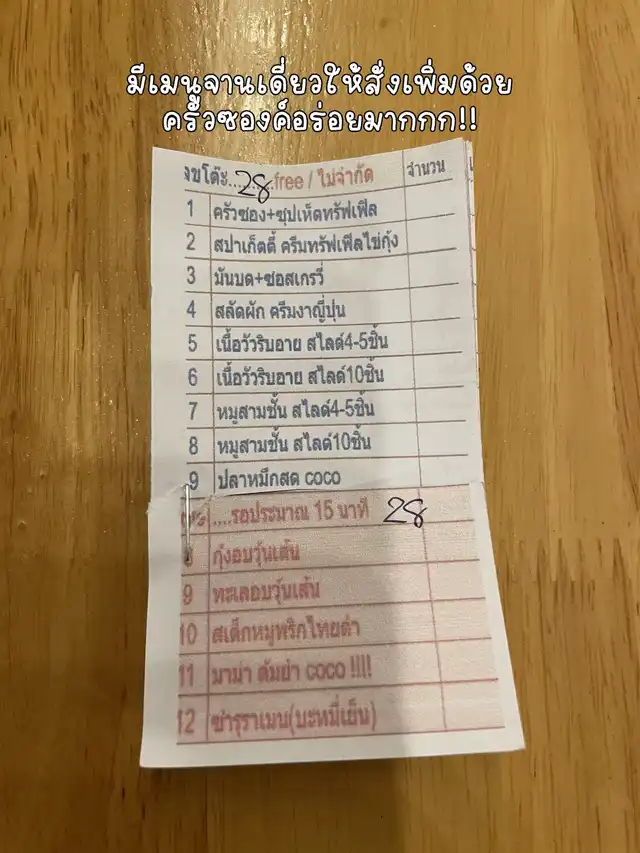 มีเมนูจานเดี่ยวให้สั่งเพิ่มด้วย
ครัวซองค์อร่อยมากกก!!
ลขโต๊ะ..28..free / ไม่จำกัด จำนวน
1 ครัวซอง+ซุปเห็ดทรัฟเฟิล
2 สปาเก็ตตี้ ครีมทรัฟเฟิลไข่กุ้ง
3 มันบด+ซอสเกรวี่
4 สลัดผัก ครีมงาญี่ปุ่น
5 เนื้อวัวริบอาย สไลด์4-5ชิ้น
6 เนื้อวัวริบอาย สไลด์10ชิ้น
7 หมูสามชั้น สไลด์4-5ชิ้น
8 หมูสามชั้น สไลด์10ชิ้น
9 ปลาหมึกสด coco
....รอประมาณ 15 นาที 28
8 กุ้งอบวุ้นเส้น
9 ทะเลอบวุ้นเส้น
10 สเต็กหมูพริกไทยดำ
11 มาม่า ต้มยำ coco !!!!
12 ซารุราเมน(บะหมี่เย็น)